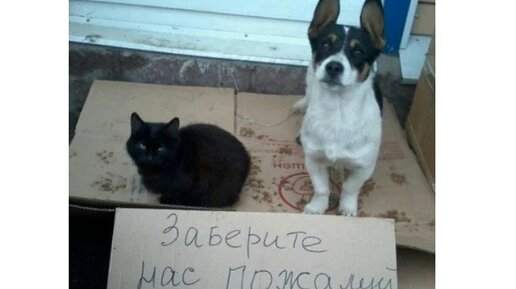 Заберите
нас пожалуй